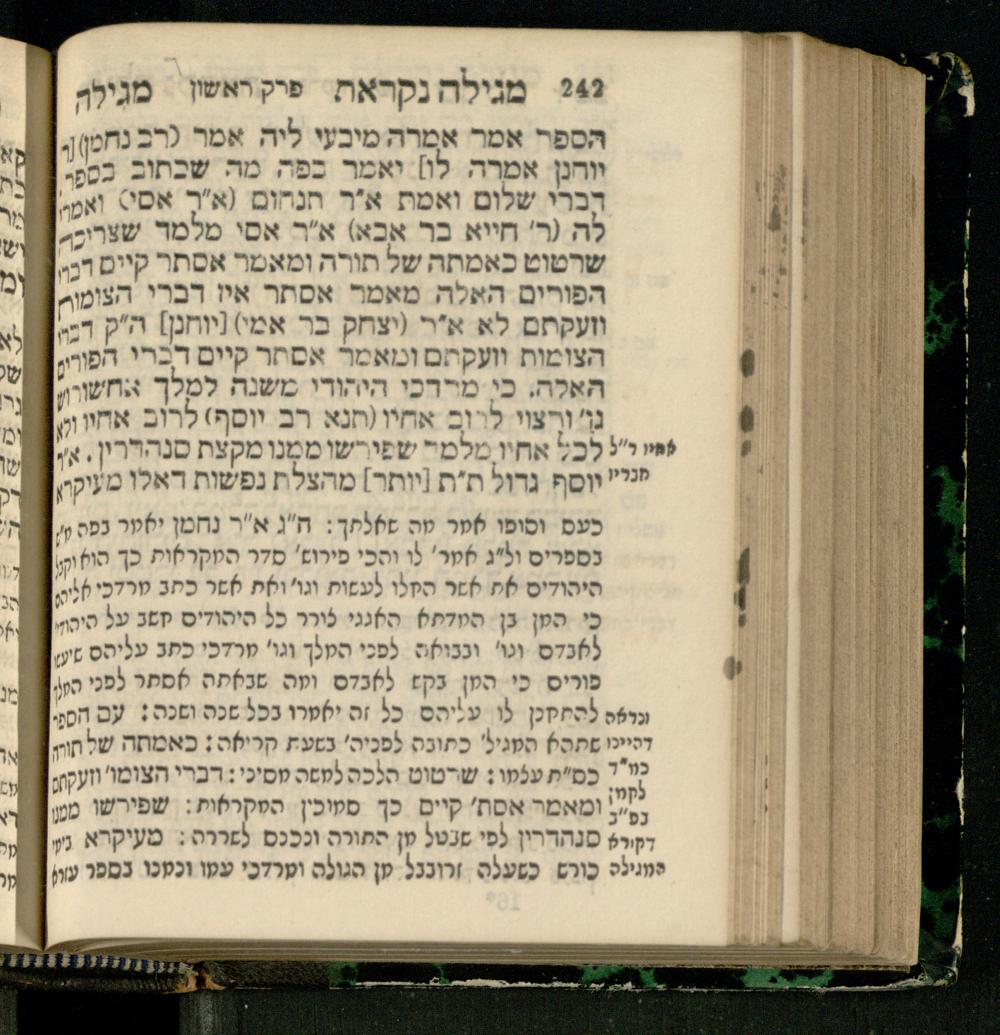 242 מגילה נקראת פרק ראשון מגילה
הספר אמר אמרה מיבעי ליה אמר (רב נחמן) [ר'
יוחנן אמרה לו] יאמר בפה מה שכתוב בספר.
דברי שלום ואמת א"ר תנחום (א"ר אסי) ואמרי
לה (ר' חייא בר אבא) א"ר אסי מלמד שצריכה
שרטוט כאמתה של תורה ומאמר אסתר קיים דברי
הפורים האלה מאמר אסתר אין דברי הצומות
וזעקתם לא א"ר (יצחק בר אמי) [יוחנן] ה"ק דברי
הצומות וזעקתם ומאמר אסתר קיים דברי הפורים
האלה. כי מרדכי היהודי משנה למלך אחשורוש
גו' ורצוי לרוב אחיו (תנא רב יוסף) לרוב אחיו ולא
לכל אחיו מלמד שפירשו ממנו מקצת סנהדרין. א"ר
יוסף גדול ת"ת [יותר] מהצלת נפשות דאלו מעיקרא
כעס וסופו אמר מה שאלתך: ה"ג א"ר נחמן יאמר בפה מ"ש
בספרים ול"ג אמר' לו והכי פירוש' סדר המקראות כך הוא וקבל
היהודים את אשר החלו לעשות וגו' ואת אשר כתב מרדכי אליהם
כי המן בן המדתא האגגי צורר כל היהודים חשב על היהודים
לאבדם וגו' ובבואה לפני המלך וגו' מרדכי כתב עליהם שיעשו
פורים כי המן בקש לאבדם ומה שבאתה אסתר לפני המלך
להתחנן לו עליהם כל זה יאמרו בכל שנה ושנה: עם הספר
שתהא המגיל' כתובה לפניה' בשעת קריאה: כאמתה של תורה
כס"ת עצמו: שרטוט הלכה למשה מסיני: דברי הצומו' וזעקתם
ומאמר אסת' קיים כך סמוכין המקראות: שפירשו ממנו
סנהדרין לפי שבטל מן התורה ונכנס לשררה: מעיקרא בימי
כורש כשעלה זרובבל מן הגולה ומרדכי עמו וכמנו בספר עזרא
אחיו ר"ל
חבריו
ונראה
דהיינו
כמ"ד
לקמן
בפ"ב
דקורא
המגילה
16*